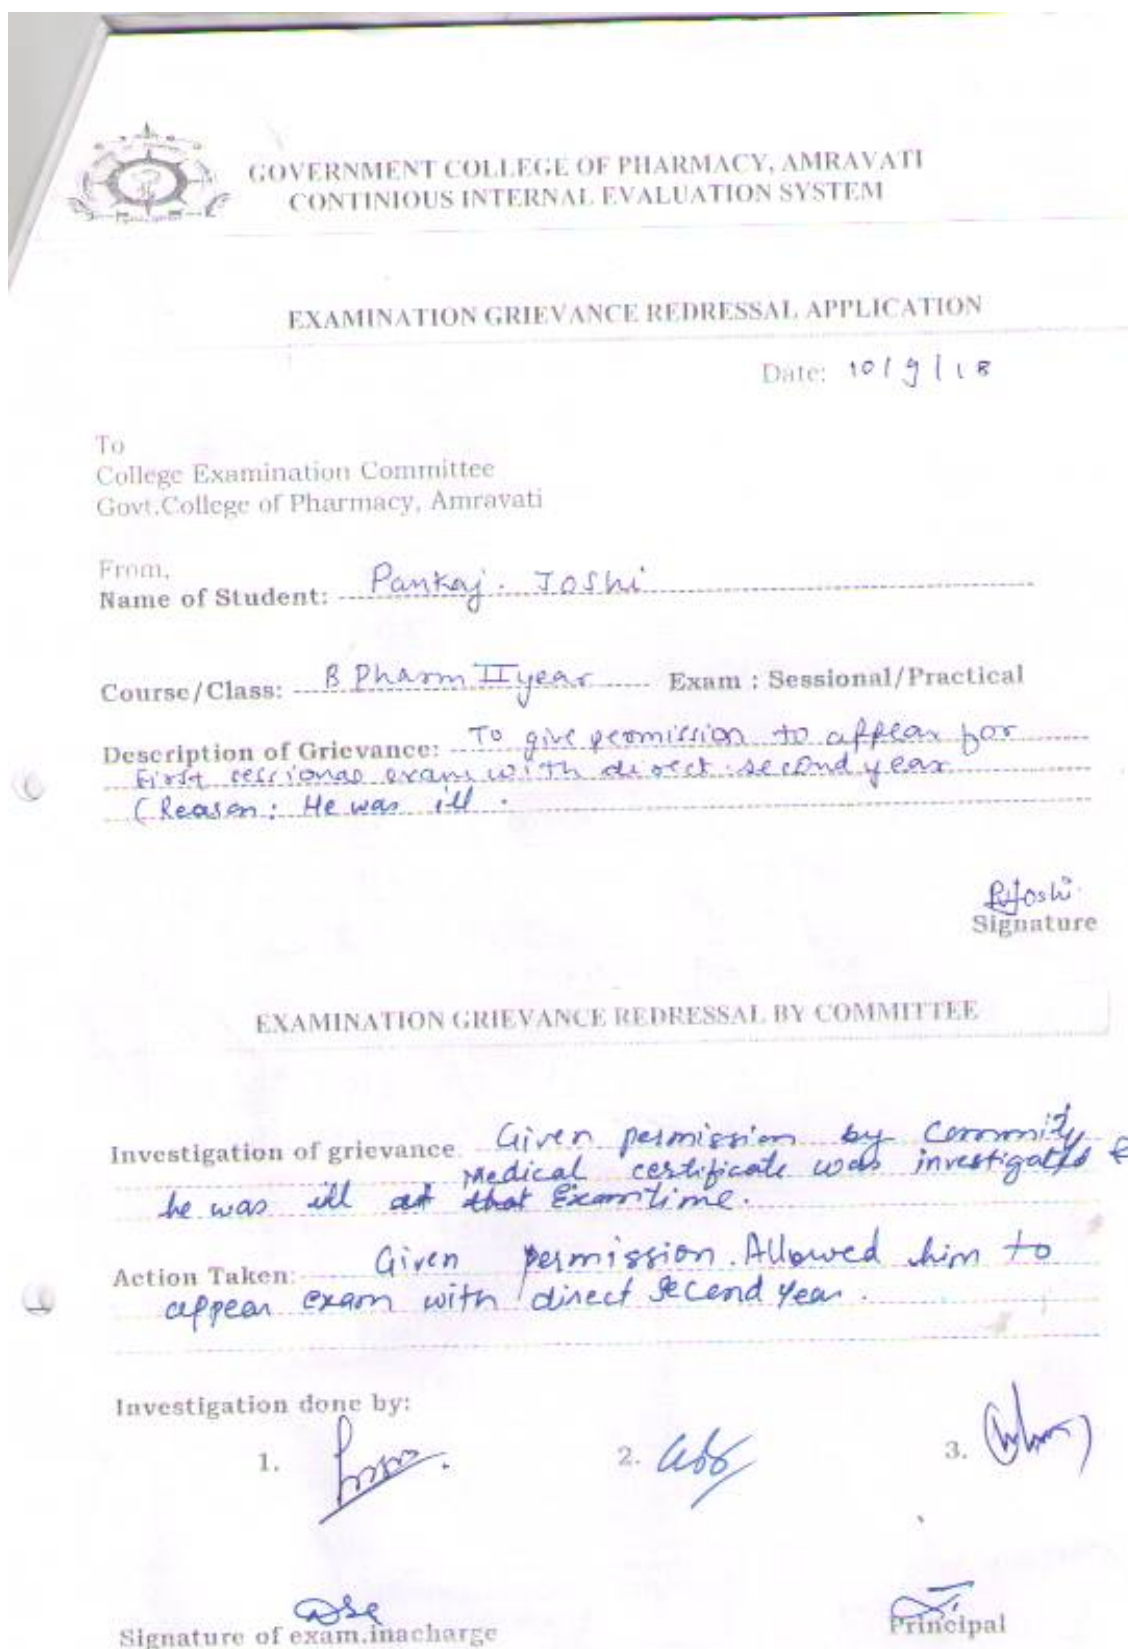 GOVERNMENT COLLEGE OF PHARMACY, AMRAVATI
CONTINIOUS INTERNAL EVALUATION SYSTEM
EXAMINATION GRIEVANCE REDRESSAL APPLICATION
Date: 10/9/18
To
College Examination Committee
Govt.College of Pharmacy, Amravati
From,
Name of Student: Pankaj. Joshi
Course/Class: B Pharm II year Exam : Sessional/Practical
Description of Grievance: To give permission to appear for
First sessional exam with direct second year
(Reason: He was ill.
PJoshi
Signature
EXAMINATION GRIEVANCE REDRESSAL BY COMMITTEE
Investigation of grievance Given permission by Commity
Medical certificate was investigated &
he was ill at that Exam time.
Action Taken: Given permission. Allowed him to
appear exam with direct second year.
Investigation done by:
1. 2. 3.
Signature of exam.inacharge Principal